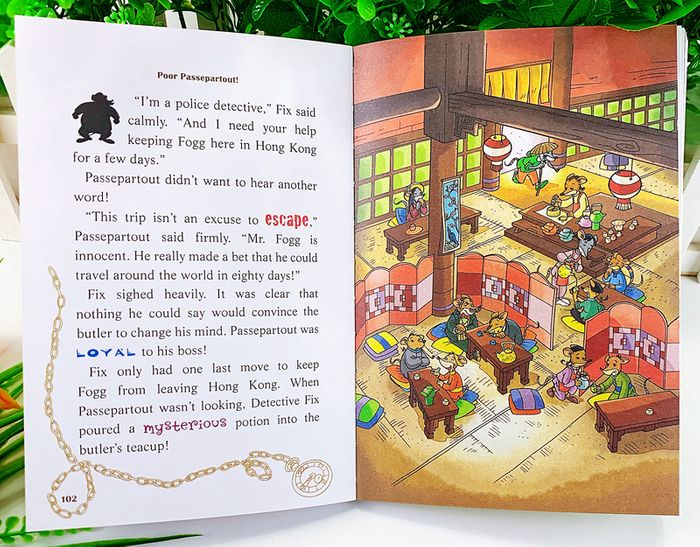 Poor Passepartout!
“I’m a police detective,” Fix said
calmly. “And I need your help
keeping Fogg here in Hong Kong
for a few days.”
Passepartout didn’t want to hear another
word!
“This trip isn’t an excuse to escape,”
Passepartout said firmly. “Mr. Fogg is
innocent. He really made a bet that he could
travel around the world in eighty days!”
Fix sighed heavily. It was clear that
nothing he could say would convince the
butler to change his mind. Passepartout was
LOYAL to his boss!
Fix only had one last move to keep
Fogg from leaving Hong Kong. When
Passepartout wasn’t looking, Detective Fix
poured a mysterious potion into the
butler’s teacup!
102